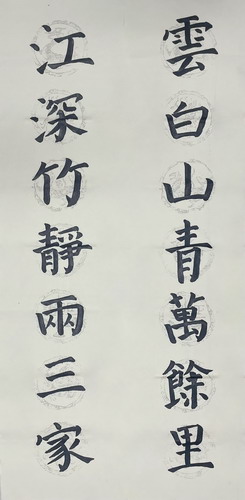 雲白山青萬餘里
江深竹靜兩三家